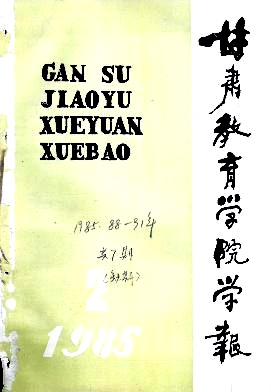 甘肃教育学院学報
GAN SU
JIAOYU
XUEYUAN
XUEBAO
1985.88-91年
共7期
2
1985